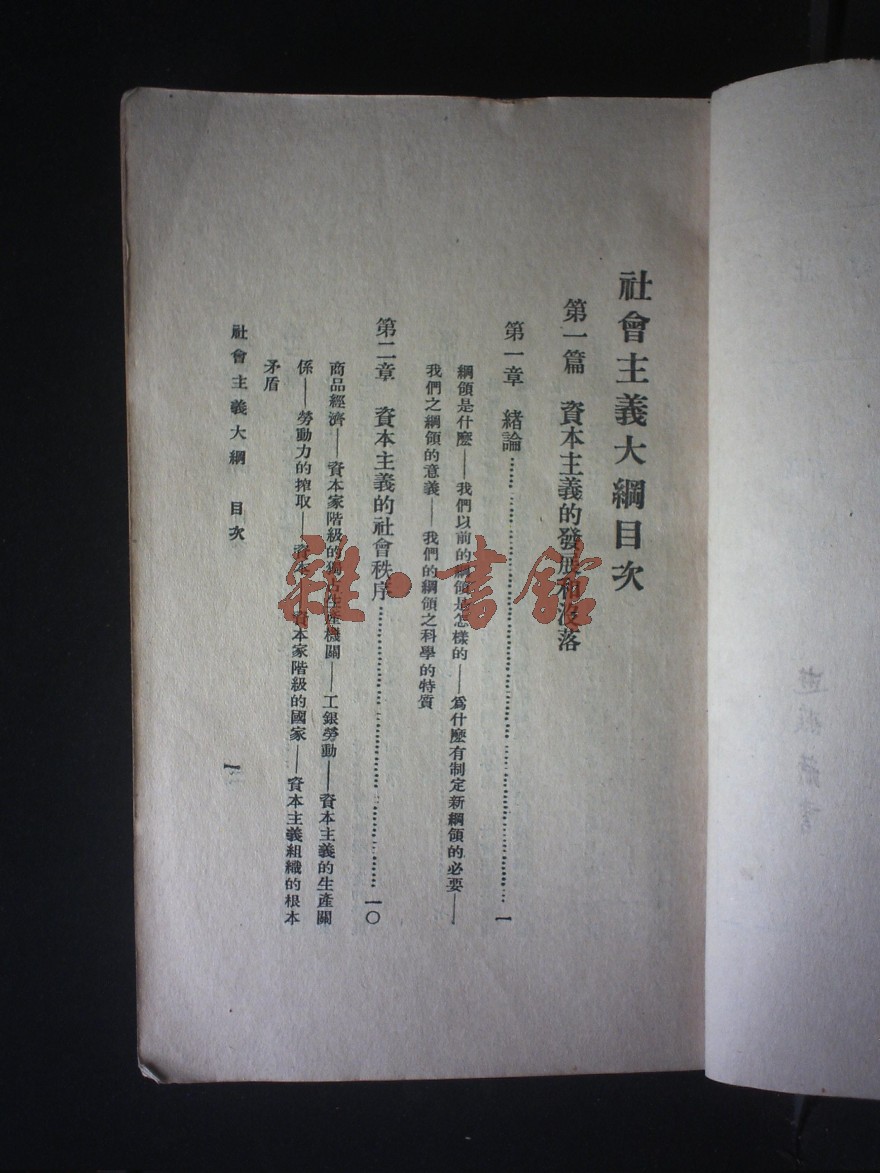 社會主義大綱目次
第一篇 資本主義的發展和沒落
第一章 緒論……一
綱領是什麼——我們以前的綱領是怎樣的——爲什麼有制定新綱領的必要——
我們之綱領的意義——我們的綱領之科學的特質
第二章 資本主義的社會秩序……一〇
商品經濟——資本家階級的獨占生產機關——工銀勞動——資本主義的生產關
係——勞動力的搾取——資本——資本家階級的國家——資本主義組織的根本
矛盾
社會主義大綱 目次
一
雜·書館